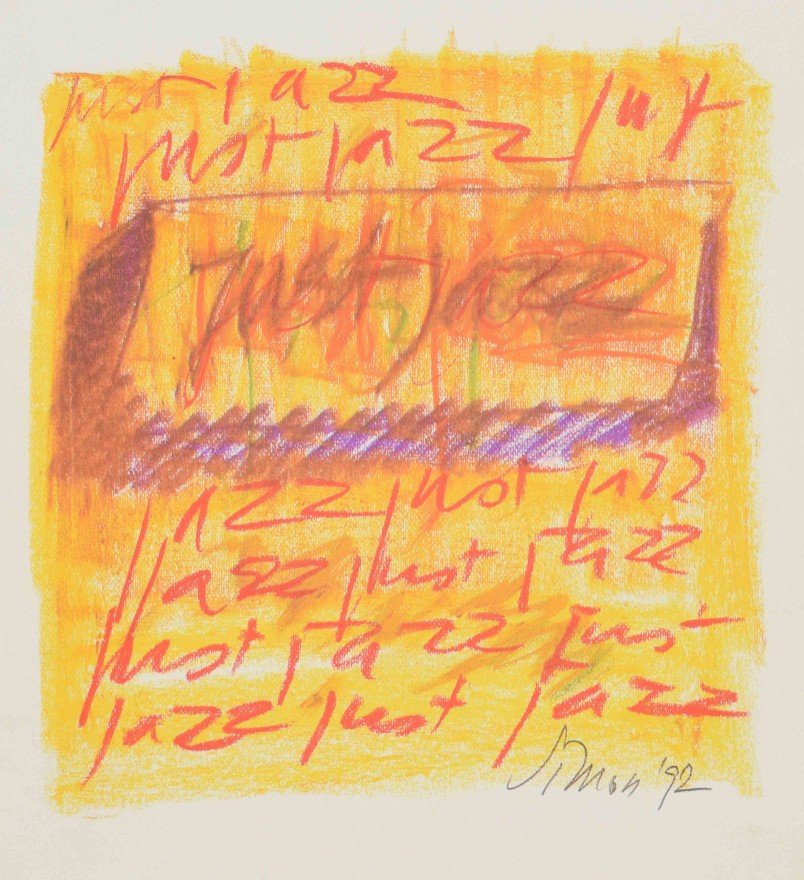 just jazz
just jazz just
just jazz
jazz just jazz
jazz just jazz
just jazz just
jazz just jazz
Simon '92